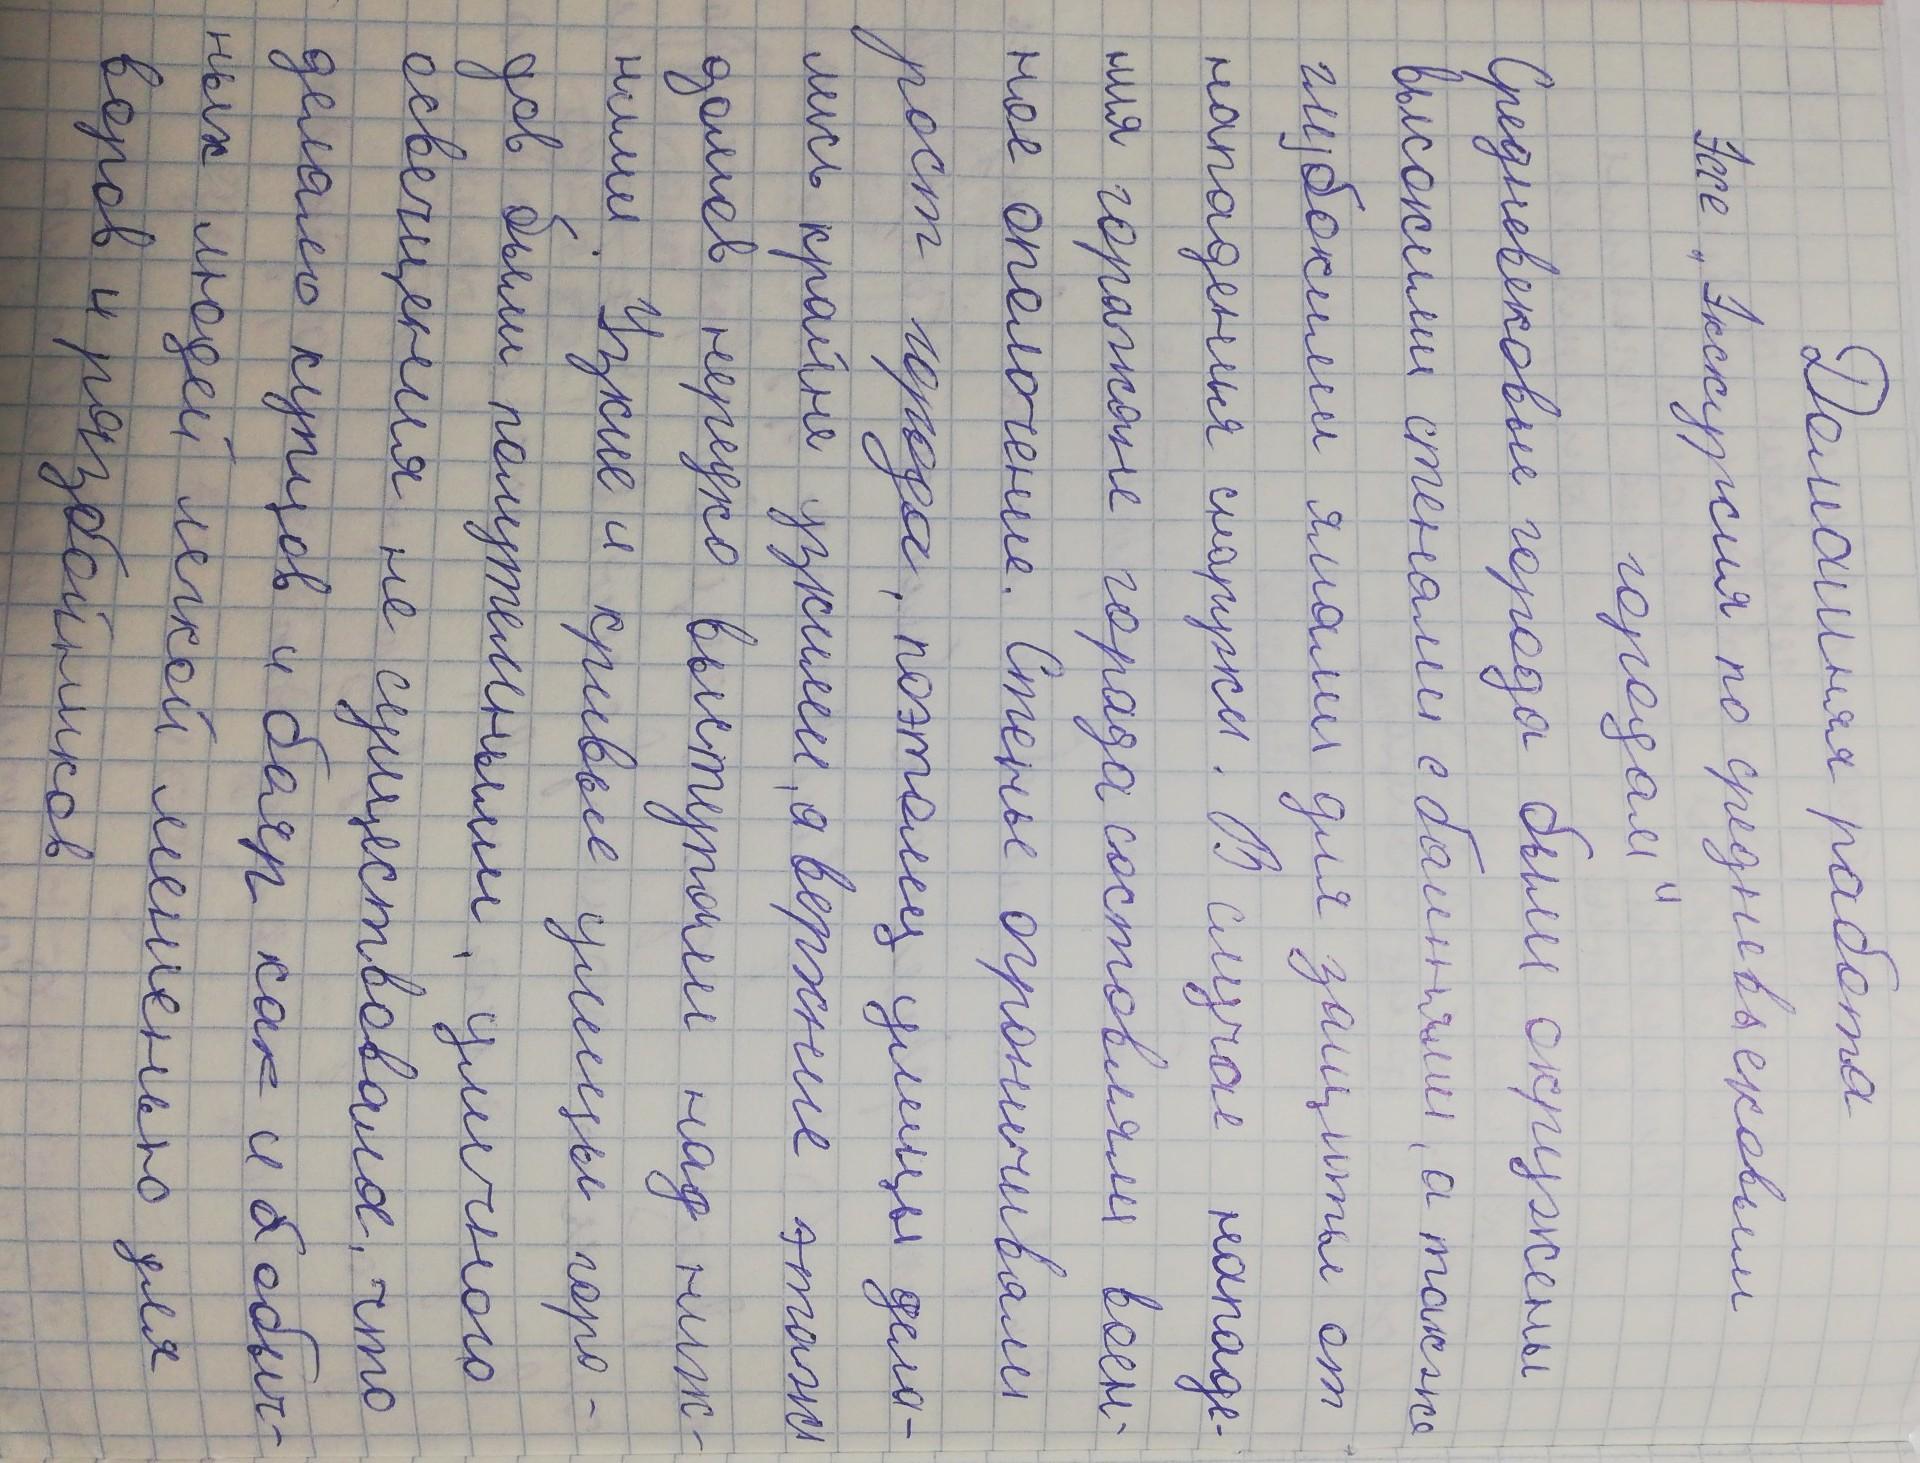 Домашняя работа
Эссе „Экскурсия по средневьековым
городам"
Средневековые города были окружены
высокими стенами с башнями, а также
глубокими ямами для защиты от
нападения снаружи. В случае нападе-
ния горожане города составляли воен-
ное ополочение. Стены ограничивали
рост города, поэтомец улицы дела-
лись крайне узкими, а верхние этажи
домов нередко выступали над ниж-
ними. Узкие и кривые улицы горо-
дов были полутемными, уличного
освещения не существовало, что
делало купцов и бояр как и обыч-
ных людей легкой мешенью для
воров и разбойников